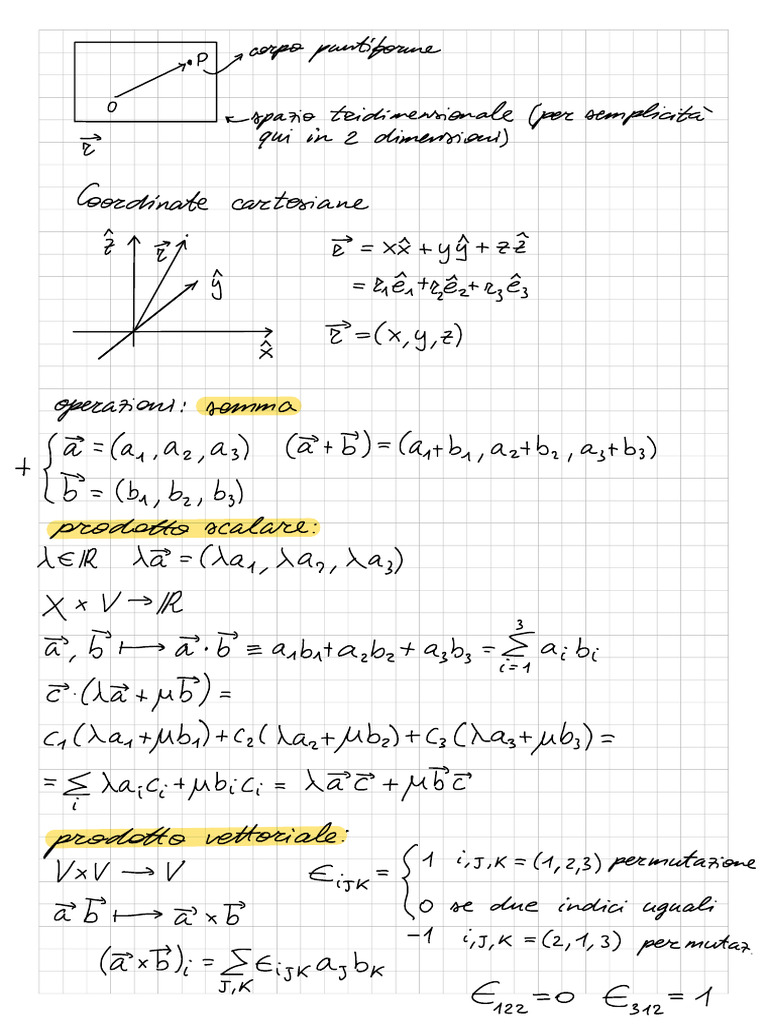 P → corpo puntiforme
O
← spazio tridimensionale (per semplicità
qui in 2 dimensioni)
$\vec{r}$
Coordinate cartesiane
$\hat{z}$ $\vec{r}$ $\hat{y}$ $\hat{x}$
$\vec{r} = x\hat{x} + y\hat{y} + z\hat{z}$
$= r_1\hat{e}_1 + r_2\hat{e}_2 + r_3\hat{e}_3$
$\vec{r} = (x, y, z)$
operazioni: somma
+ { $\vec{a} = (a_1, a_2, a_3)$ $(\vec{a} + \vec{b}) = (a_1+b_1, a_2+b_2, a_3+b_3)$
$\vec{b} = (b_1, b_2, b_3)$
prodotto scalare:
$\lambda \in \mathbb{R}$ $\lambda\vec{a} = (\lambda a_1, \lambda a_2, \lambda a_3)$
$X \times V \to \mathbb{R}$
$\vec{a}, \vec{b} \longmapsto \vec{a} \cdot \vec{b} \equiv a_1b_1 + a_2b_2 + a_3b_3 = \sum_{i=1}^{3} a_i b_i$
$\vec{c} \cdot (\lambda\vec{a} + \mu\vec{b}) =$
$c_1(\lambda a_1 + \mu b_1) + c_2(\lambda a_2 + \mu b_2) + c_3(\lambda a_3 + \mu b_3) =$
$= \sum_i \lambda a_i c_i + \mu b_i c_i = \lambda\vec{a}\vec{c} + \mu\vec{b}\vec{c}$
prodotto vettoriale:
$V \times V \to V$
$\vec{a}\ \vec{b} \longmapsto \vec{a} \times \vec{b}$
$(\vec{a} \times \vec{b})_i = \sum_{J,K} \epsilon_{iJK} a_J b_K$
$\epsilon_{iJK} =$ { 1 i,J,K = (1,2,3) permutazione
0 se due indici uguali
-1 i,J,K = (2,1,3) permutaz.
$\epsilon_{122} = 0$ $\epsilon_{312} = 1$